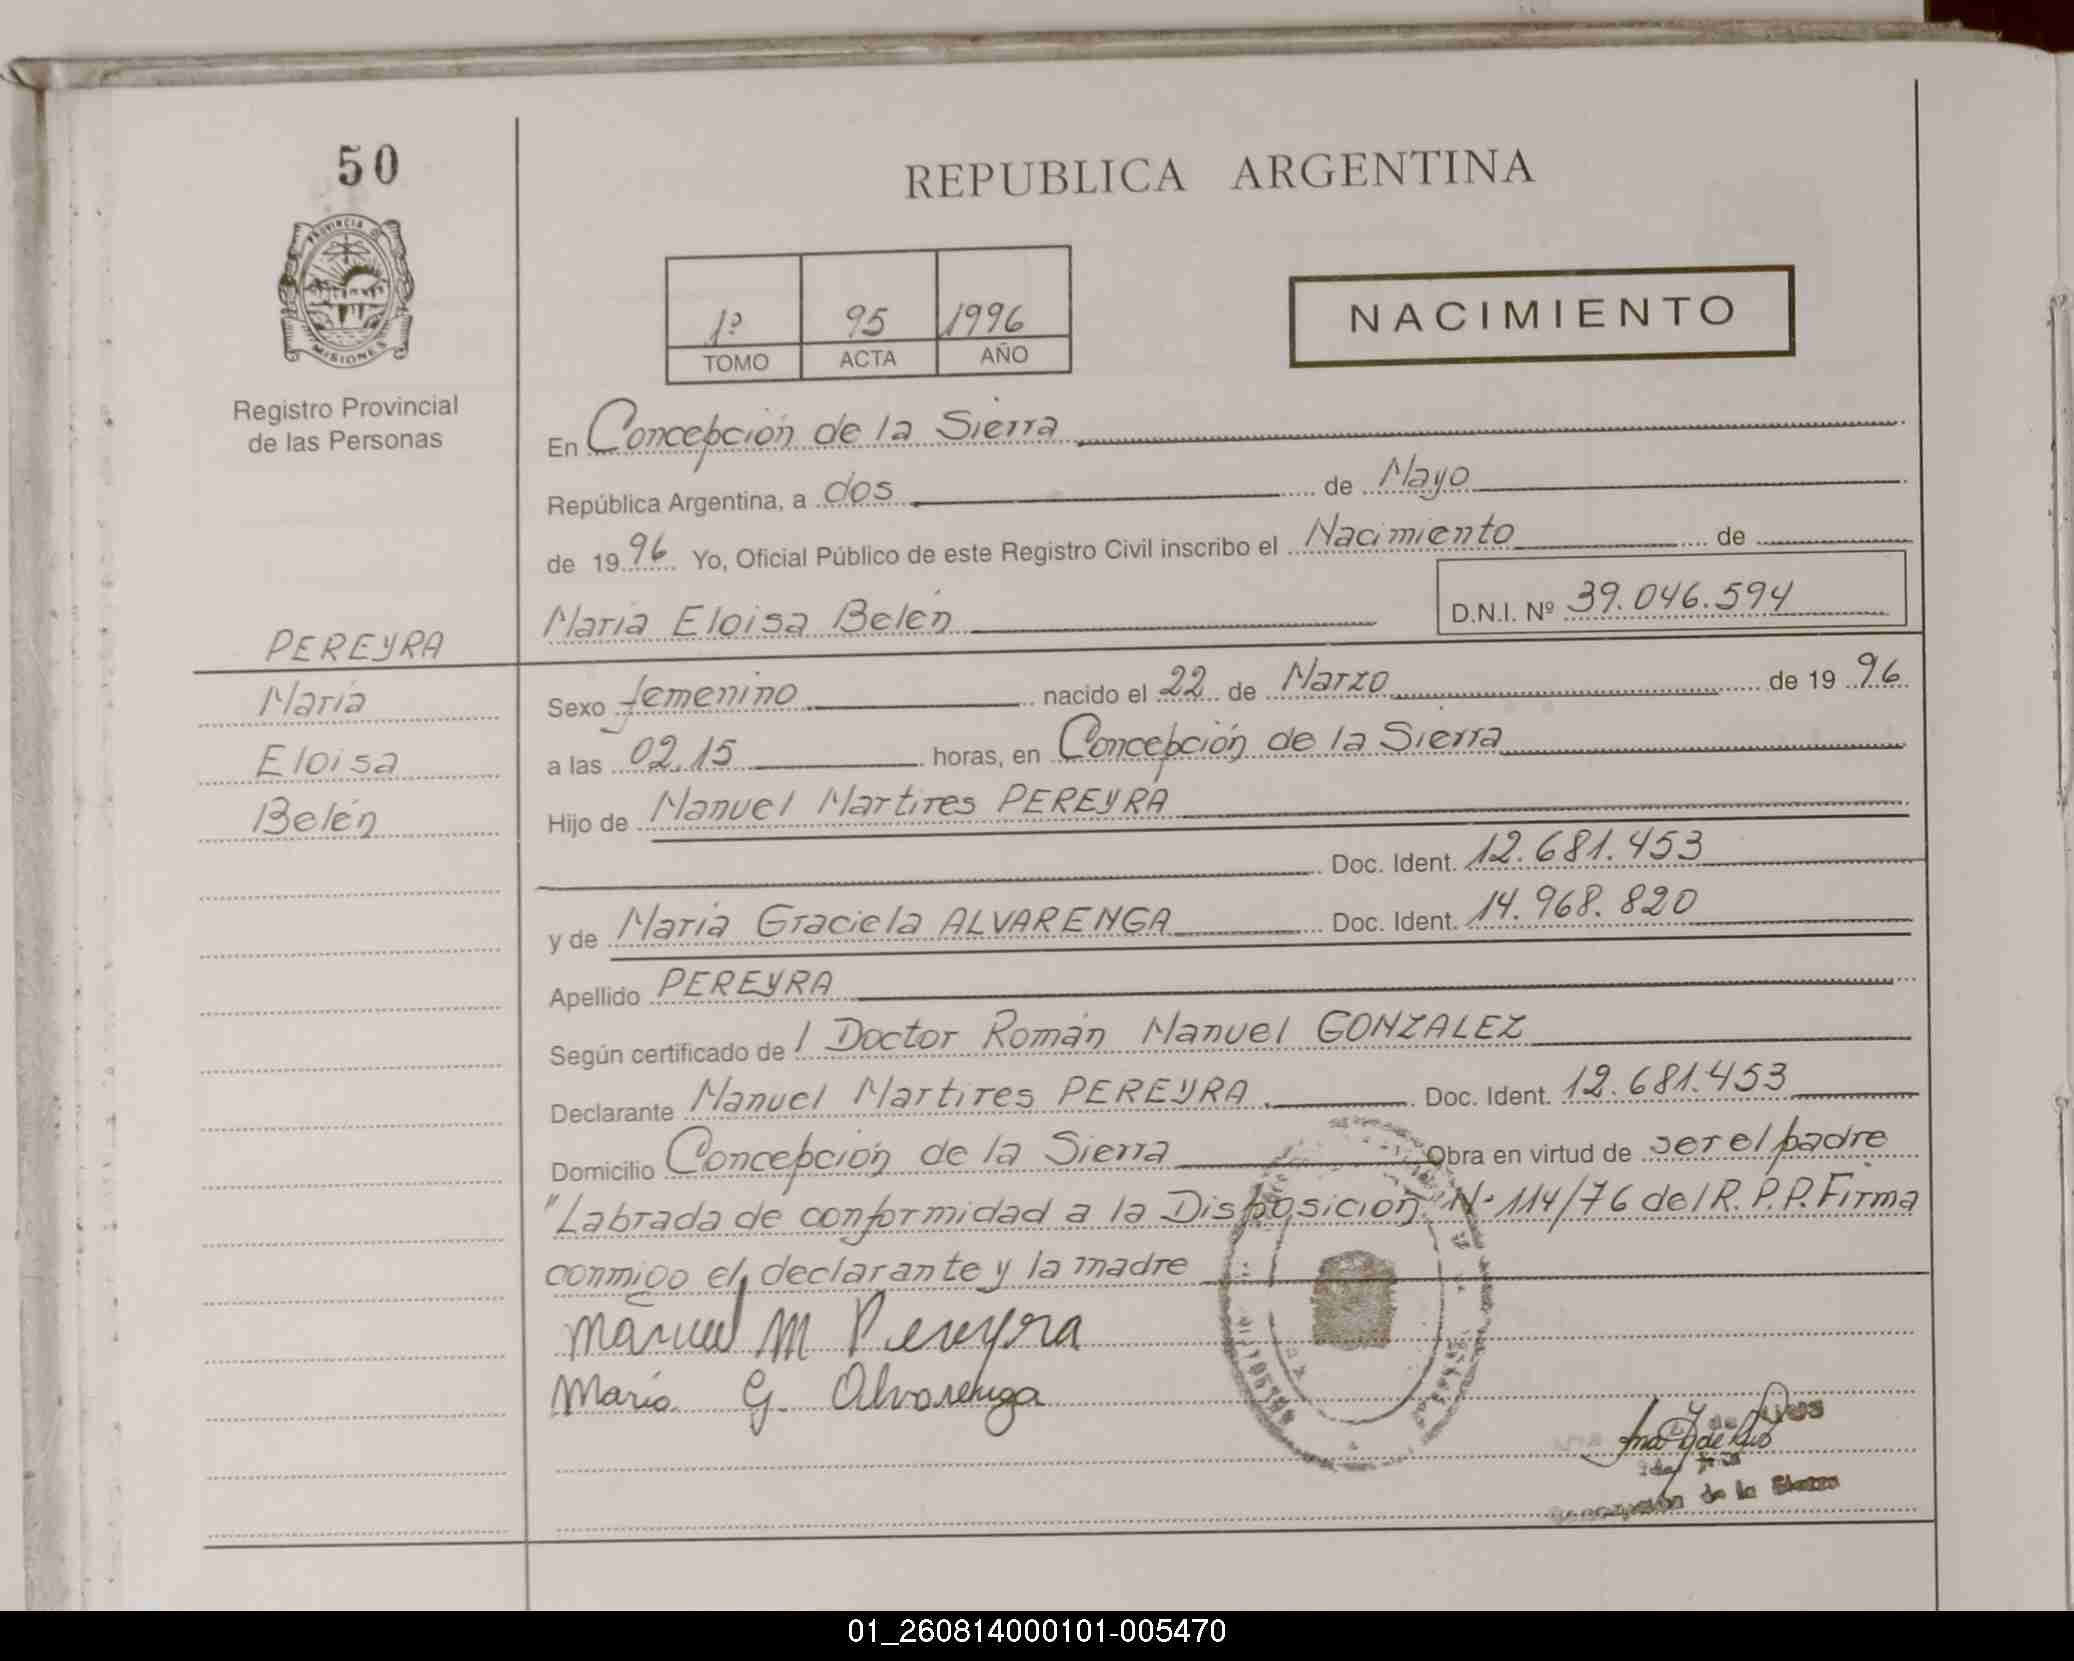 50
REPUBLICA ARGENTINA
PROVINCIA D
MISIONES
Registro Provincial
de las Personas
1º 95 1996
TOMO ACTA AÑO
NACIMIENTO
En Concepción de la Sierra
República Argentina, a dos de Mayo
de 1996 Yo, Oficial Público de este Registro Civil inscribo el Nacimiento de
María Eloisa Belén D.N.I. Nº 39.046.594
PEREYRA
María
Eloisa
Belén
Sexo femenino nacido el 22 de Marzo de 1996
a las 02.15 horas, en Concepción de la Sierra
Hijo de Manuel Martires PEREYRA
Doc. Ident. 12.681.453
y de María Graciela ALVARENGA Doc. Ident. 14.968.820
Apellido PEREYRA
Según certificado de l Doctor Román Manuel GONZALEZ
Declarante Manuel Martires PEREYRA Doc. Ident. 12.681.453
Domicilio Concepción de la Sierra Obra en virtud de ser el padre
"Labrada de conformidad a la Disposición Nº 114/76 del R.P.P. Firma
conmigo el declarante y la madre
Manuel M Pereyra
María G. Alvarenga
de la Sierra
01_260814000101-005470